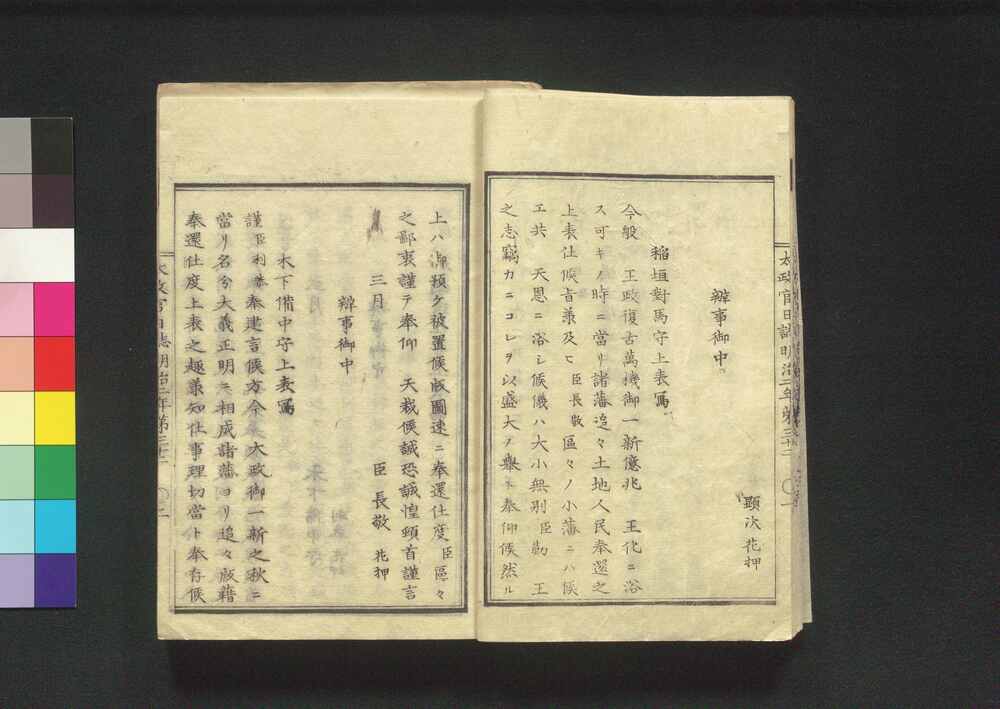 顯次 花押
辧事御中
稲垣對馬守上表寫
今般 王政復古萬機御一新億兆 王化ニ浴
ス可キノ時ニ當リ諸藩追々土地人民奉還之
上表仕候旨兼及ヒ臣長敬區々ノ小藩ニハ候
エ共 天恩ニ浴シ候儀ハ大小無別臣勤 王
之志竊カニコレヲ以盛大ヲ無ト奉仰候然ル
上ハ御預ケ被置候版圖速ニ奉還仕度臣區々
之鄙衷謹テ奉仰 天裁候誠恐誠惶頓首謹言
三月 臣 長敬 花押
辧事御中
木下備中守上表寫
謹臣利恭奉建言候方今 大政御一新之秋ニ
當リ名分大義正明ニ相成諸藩ヨリ追々版籍
奉還仕度上表之趣兼知仕事理切當ト奉存候
太政官日誌明治二年第三十二